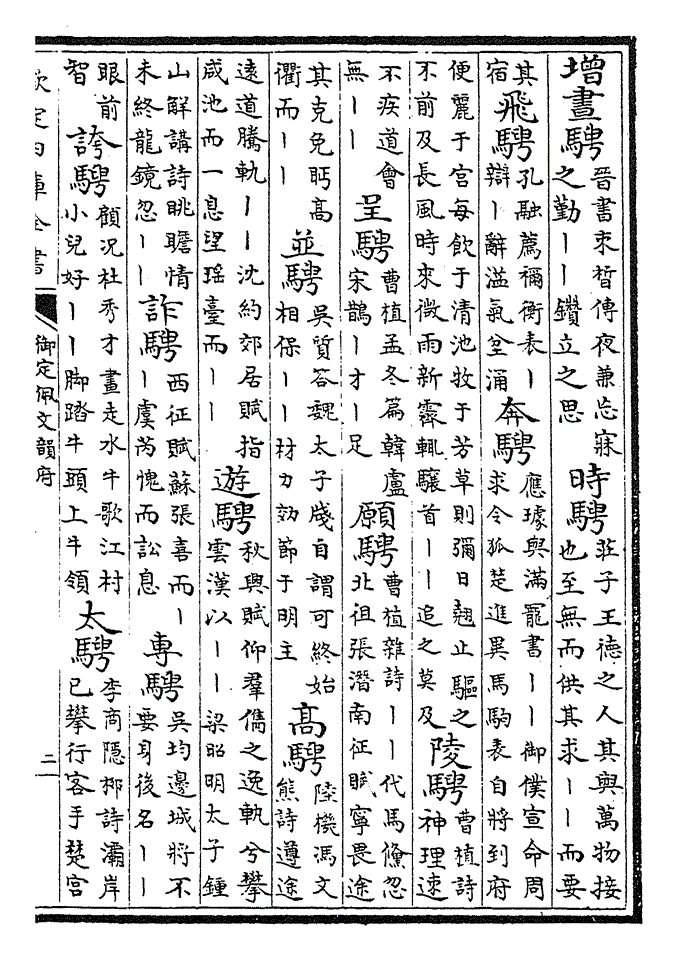 增晝騁晉書束晳傳夜兼忘寐之勤丨丨鑽立之思時騁莊子王德之人其與萬物接也至無而供其求丨丨而要
其宿飛騁孔融薦禰衡表丨辯丨辭溢氣坌涌奔騁應璩與滿寵書丨丨御僕宣命周求令狐楚進異馬駒表自將到府
便麗于宮每飲于清池牧于芳草則彌日翹止驅之不前及長風時來微雨新霽輒驤首丨丨追之莫及陵騁曹植詩神理速
不疾道會無丨丨呈騁曹植孟冬篇韓盧宋鵲丨才丨足願騁曹植雜詩丨丨代馬倏忽北徂張潛南征賦寧畏途
其克免眄高衢而丨丨並騁吳質答魏太子牋自謂可終始相保丨丨材力効節于明主高騁陸機馮文熊詩遵途
遠道騰軌丨丨沈約郊居賦指咸池而一息望瑤臺而丨丨遊騁秋興賦仰羣儁之逸軌兮攀雲漢以丨丨梁昭明太子鍾
山解講詩眺瞻情未終龍鏡忽丨丨詐騁西征賦蘇張喜而丨丨虞芮愧而訟息專騁吳均邊城將不要身後名丨丨
眼前智誇騁顧况杜秀才畫走水牛歌江村小兒好丨丨脚踏牛頭上牛領太騁李商隱柳詩灞岸已攀行客手楚宮
欽定四庫全書
御定佩文韻府
二